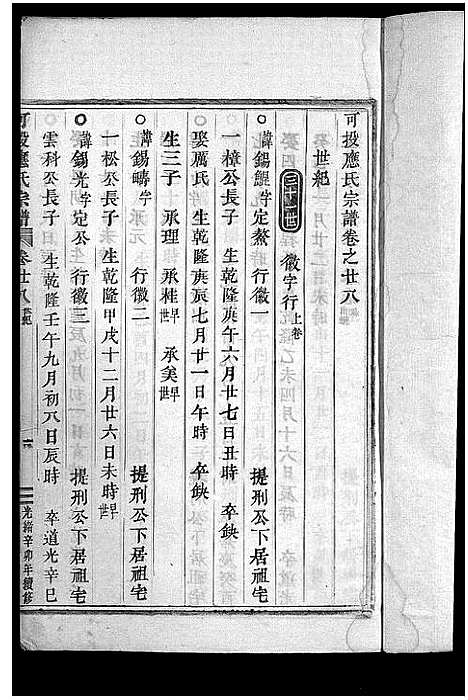 可投應氏宗譜卷之廿八
世紀
徽字行上卷
諱錫鯤字定鰲 行徽一 提刑公下居祖宅
一樟公長子 生乾隆庚午六月廿七日丑時 卒缺
娶厲氏 生乾隆庚辰七月廿一日午時 卒缺
生三子 承理 承桂早世 承美早世
諱錫疇字 行徽二 提刑公下居祖宅
一松公長子 生乾隆甲戌十二月廿六日未時早世
諱錫光字定公 行徽三 提刑公下居祖宅
雲科公長子 生乾隆壬午九月初八日辰時 卒道光辛巳
可投應氏宗譜 卷廿八 世紀
光緒辛卯年續修